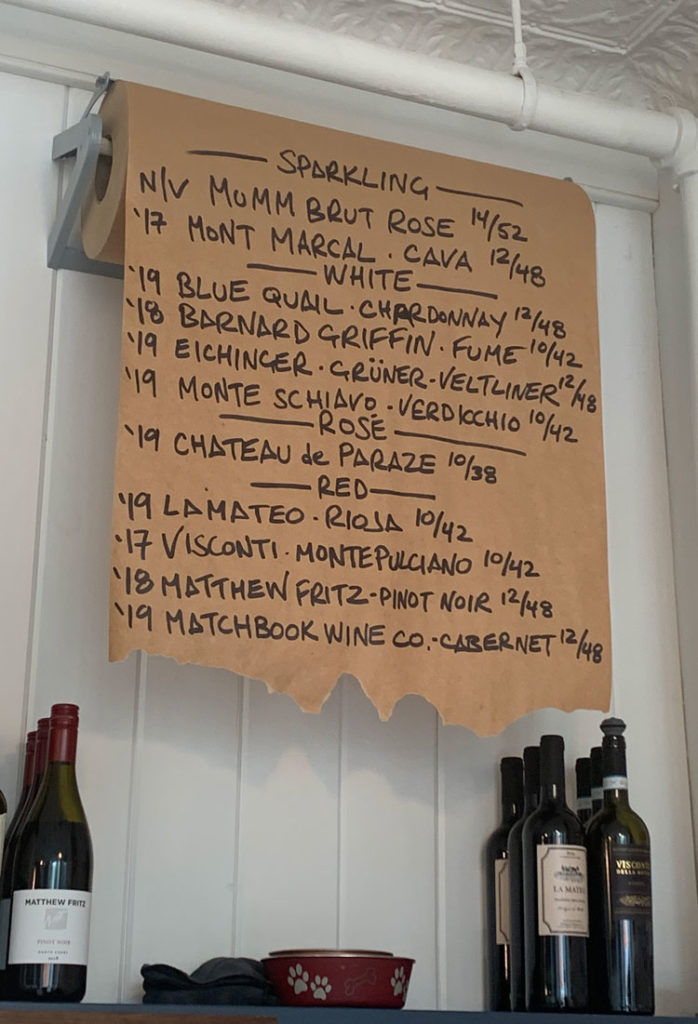 SPARKLING
N/V MUMM BRUT ROSE 14/52
'17 MONT MARCAL . CAVA 12/48
WHITE
'19 BLUE QUAIL . CHARDONNAY 12/48
'18 BARNARD GRIFFIN . FUME 10/42
'19 EICHINGER . GRÜNER-VELTLINER 12/48
'19 MONTE SCHIAVO . VERDICCHIO 10/42
ROSÉ
'19 CHATEAU de PARAZE 10/38
RED
'19 LA MATEO . RIOJA 10/42
'17 VISCONTI . MONTEPULCIANO 10/42
'18 MATTHEW FRITZ - PINOT NOIR 12/48
'19 MATCHBOOK WINE CO. - CABERNET 12/48
MATTHEW FRITZ
PINOT NOIR
NORTH COAST
2018
LA MATE
VISCONT
DELLA